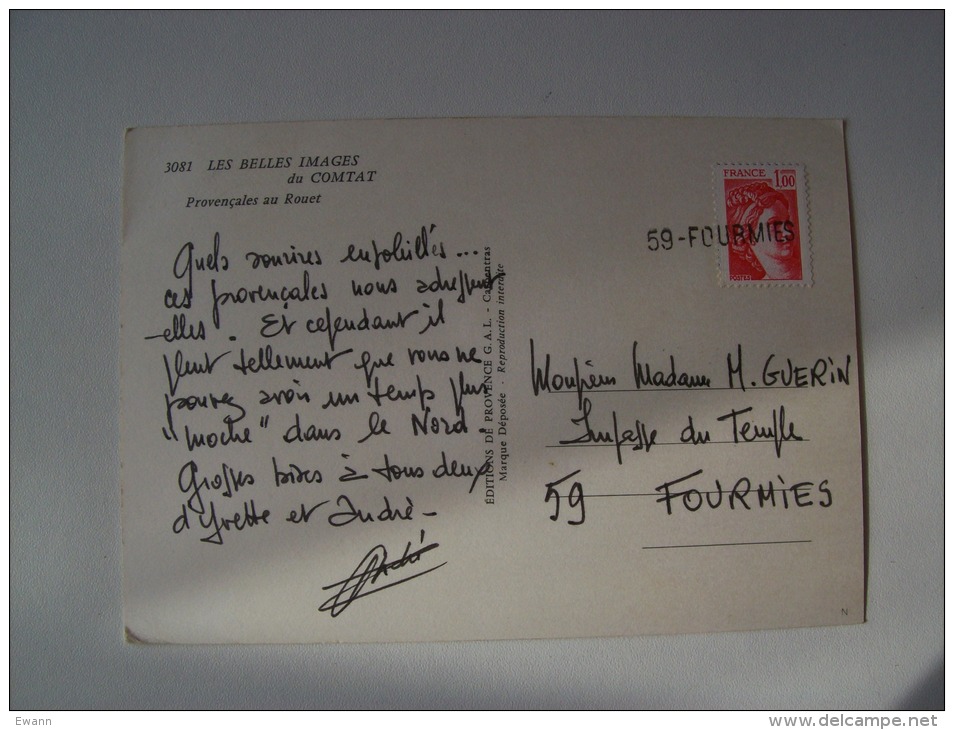 3081 LES BELLES IMAGES
du COMTAT
Provençales au Rouet
Quels sourires
ces provençales nous adressent
-elles. Et cependant il
pleut tellement que vous ne
pouvez avoir un temps plus
"moche" dans le Nord.
Grosses bises à tous deux
d'Yvette et André -
André
ÉDITIONS DE PROVENCE G.A.L. - Carpentras
Marque Déposée - Reproduction interdite
FRANCE 1,00
POSTES
59-FOURMIES
Monsieur Madame M. GUERIN
Impasse du Temple
59 FOURMIES
N
Ewann
www.delcampe.net